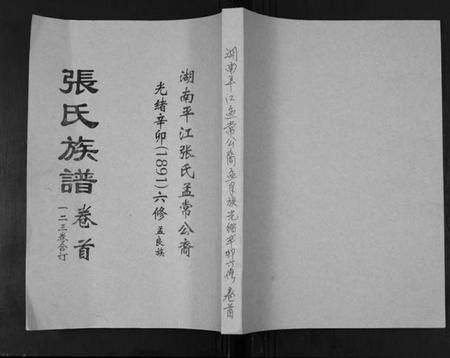 湖南平江張氏孟常公裔
光緒辛卯(1891)六修 孟良族
張氏族譜 卷首
一二三卷合订
湖南平江孟常公裔孟良族光緒辛卯六修 卷首